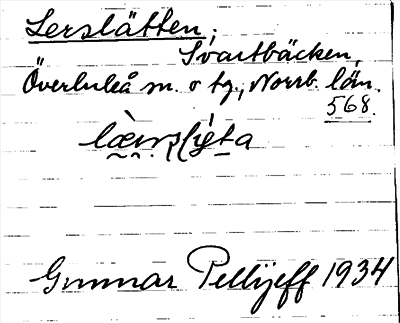 Lerslätten,
Svartbäcken,
Överluleå sn. o tg., Norrb. län.
568.
Gunnar Pellijeff 1934